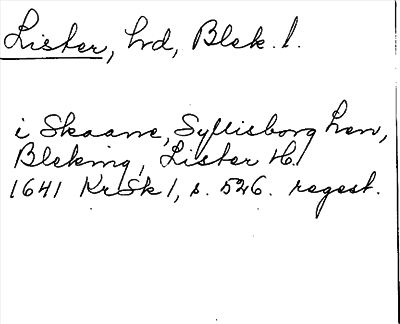 Lister, hrd, Blek. l.
i Skaane, Syllisborg Len,
Bleking, Lister H.
1641 KrSk 1, s. 526. regest.